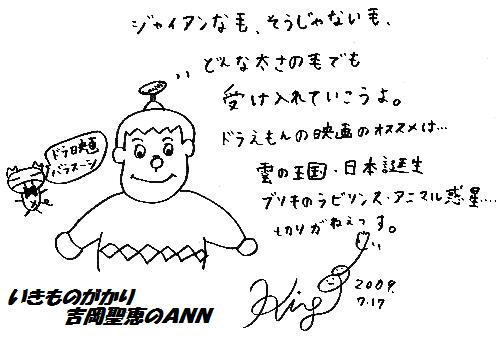 ジャイアンな毛、そうじゃない毛、
どんな太さの毛でも
受け入れていこうよ。
ドラえもんの映画のオススメは…
雲の王国・日本誕生
ブリキのラビリンス・アニマル惑星…
キリがねぇっす。
ドラ映画
バラスーシ
King
2009.
7.17
いきものがかり
吉岡聖恵のANN